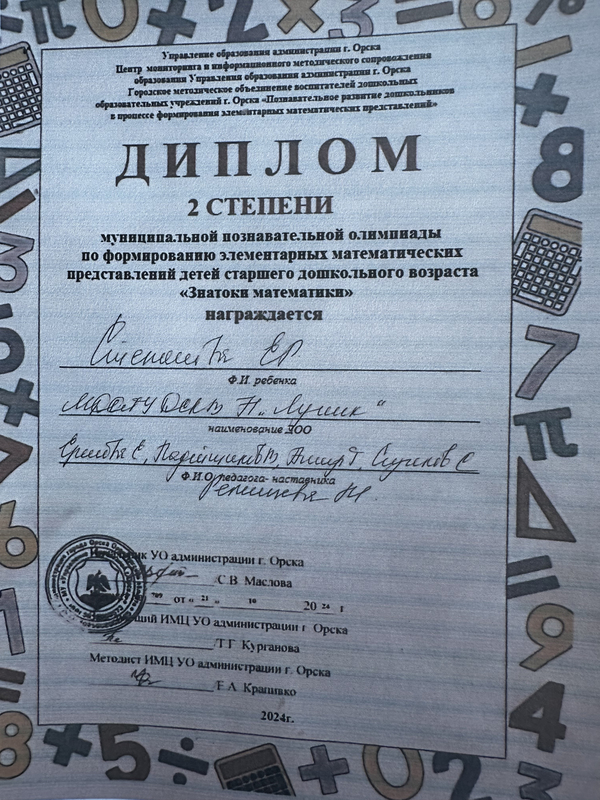 Управление образования администрации г. Орска
Центр мониторинга и информационного методического сопровождения
образования Управления образования администрации г. Орска
Городское методическое объединение воспитателей дошкольных
образовательных учреждений г. Орска «Познавательное развитие дошкольников
в процессе формирования элементарных математических представлений»
ДИПЛОМ
2 СТЕПЕНИ
муниципальной познавательной олимпиады
по формированию элементарных математических
представлений детей старшего дошкольного возраста
«Знатоки математики»
награждается
Ф.И. ребенка
"Лучик"
наименование ДОО
Ф.И.О. педагога- наставника
УО администрации г. Орска
/С.В. Маслова
709 от « 21 » 10 20 24 г
ИМЦ УО администрации г. Орска
/Т.Г. Курганова
Методист ИМЦ УО администрации г. Орска
/Е.А. Крапивко
2024г.